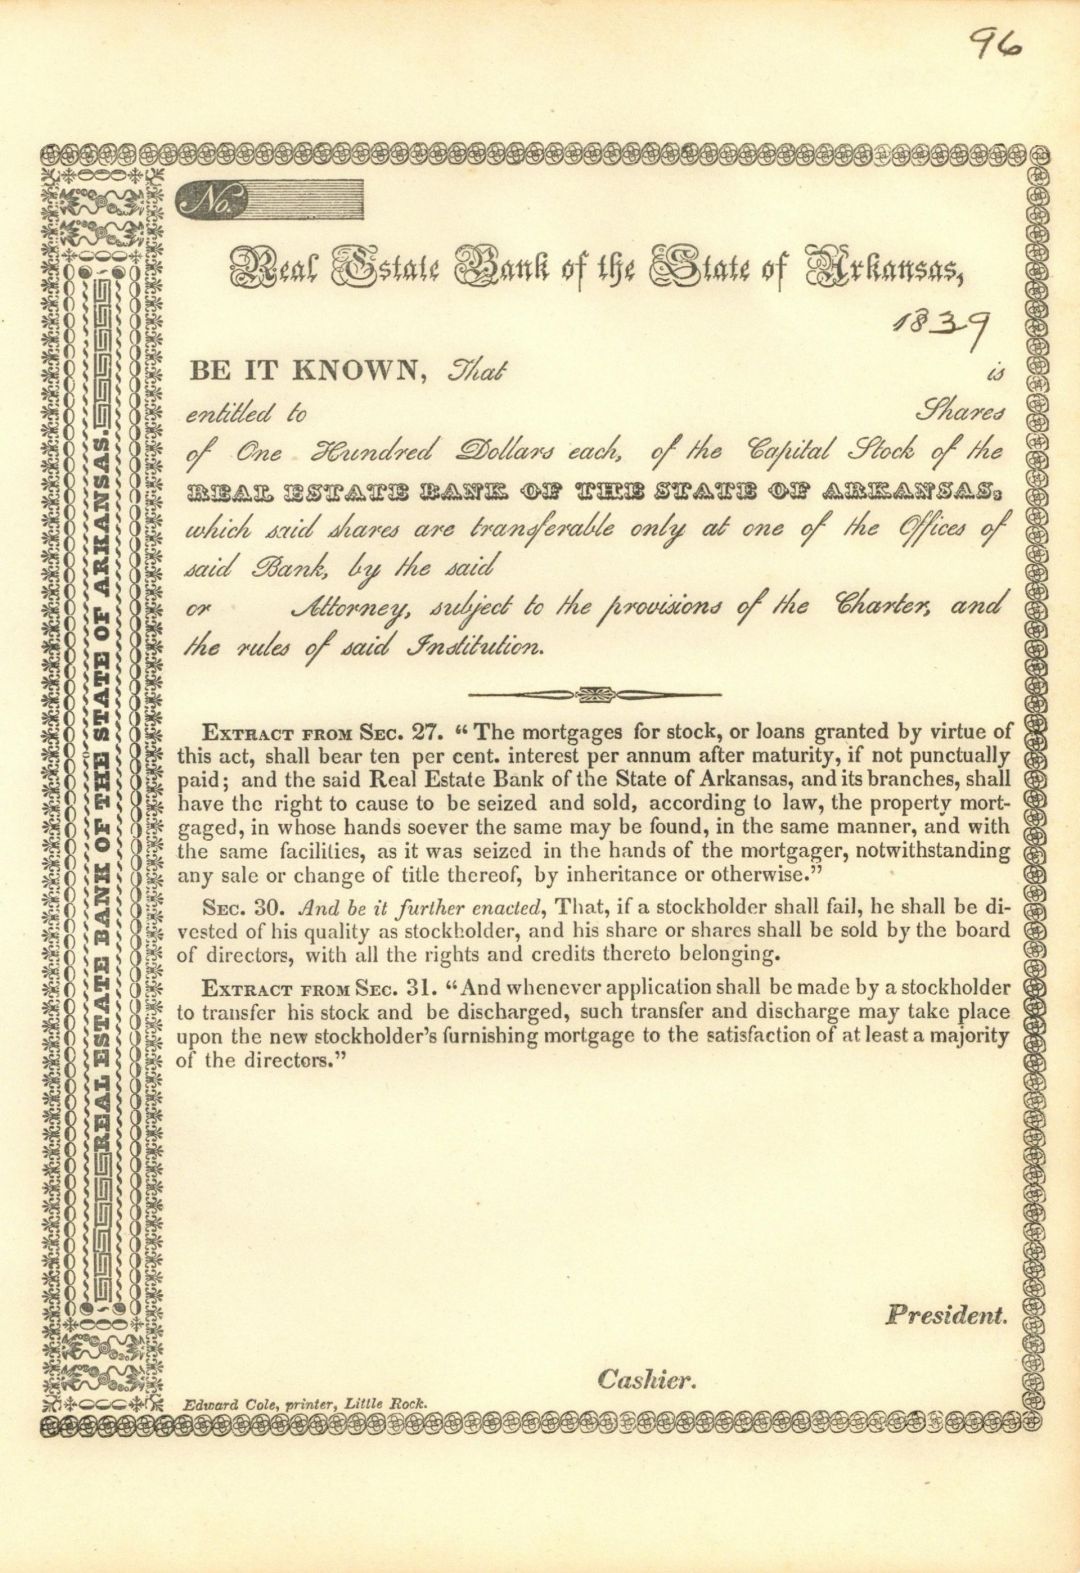 96
No.
Real Estate Bank of the State of Arkansas,
1839
BE IT KNOWN, That is
entitled to Shares
of One Hundred Dollars each, of the Capital Stock of the
REAL ESTATE BANK OF THE STATE OF ARKANSAS,
which said shares are transferable only at one of the Offices of
said Bank, by the said
or Attorney, subject to the provisions of the Charter, and
the rules of said Institution.
EXTRACT FROM SEC. 27. "The mortgages for stock, or loans granted by virtue of
this act, shall bear ten per cent. interest per annum after maturity, if not punctually
paid; and the said Real Estate Bank of the State of Arkansas, and its branches, shall
have the right to cause to be seized and sold, according to law, the property mort-
gaged, in whose hands soever the same may be found, in the same manner, and with
the same facilities, as it was seized in the hands of the mortgager, notwithstanding
any sale or change of title thereof, by inheritance or otherwise."
SEC. 30. And be it further enacted, That, if a stockholder shall fail, he shall be di-
vested of his quality as stockholder, and his share or shares shall be sold by the board
of directors, with all the rights and credits thereto belonging.
EXTRACT FROM SEC. 31. "And whenever application shall be made by a stockholder
to transfer his stock and be discharged, such transfer and discharge may take place
upon the new stockholder's furnishing mortgage to the satisfaction of at least a majority
of the directors."
President.
Cashier.
Edward Cole, printer, Little Rock.
REAL ESTATE BANK OF THE STATE OF ARKANSAS.